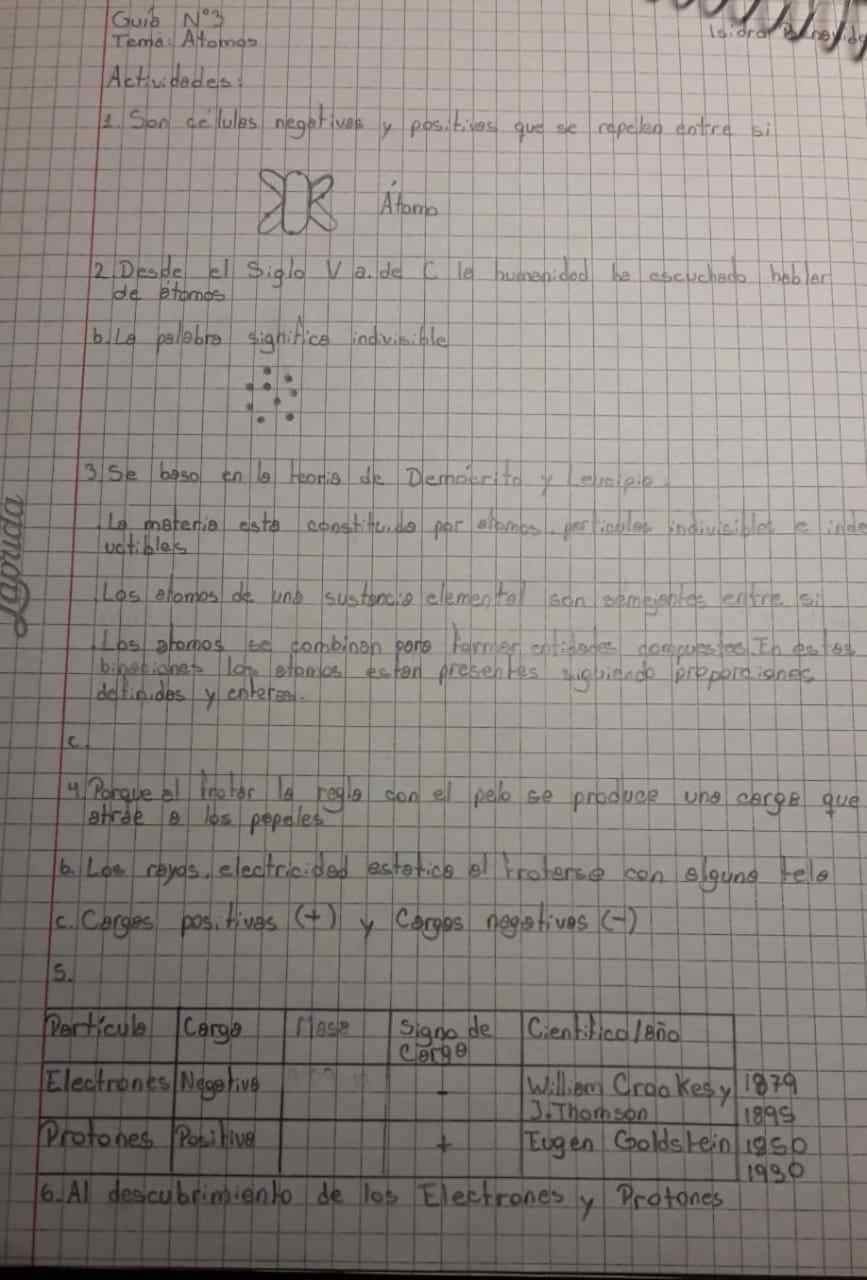 Guia N°3
Tema: Atomos
Isidora
Actividades:
1. Son celulas negativas y positivas que se repelen entre si
Átomo
2. Desde el Siglo V a. de C la humanidad ha escuchado hablar
de átomos
b. La palabra significa indivisible
3. Se baso en la teoria de Demócrito y Leucipio.
La materia esta constituida por atomos, particulas indivisibles e inde
uctibles
Los atomos de una sustancia elemental son semejantes entre si
Los atomos se combinan para formar entidades compuestas. En estas
los atomos estan presentes siguiendo proporciones
definidas y enteras.
c.
4. Porque al frotar la regla con el pelo se produce una carga que
atrae a los papeles
b. Los rayos, electricidad estatica al frotarse con alguna tela
c. Cargas positivas (+) y Cargas negativas (-)
5.
Particula Carga Masa Signo de Carga Cientifico/año
Electrones Negativa - William Crookes y 1879
J. Thomson 1895
Protones Positiva + Eugen Goldstein
6. Al descubrimiento de los Electrones y Protones
Laguda